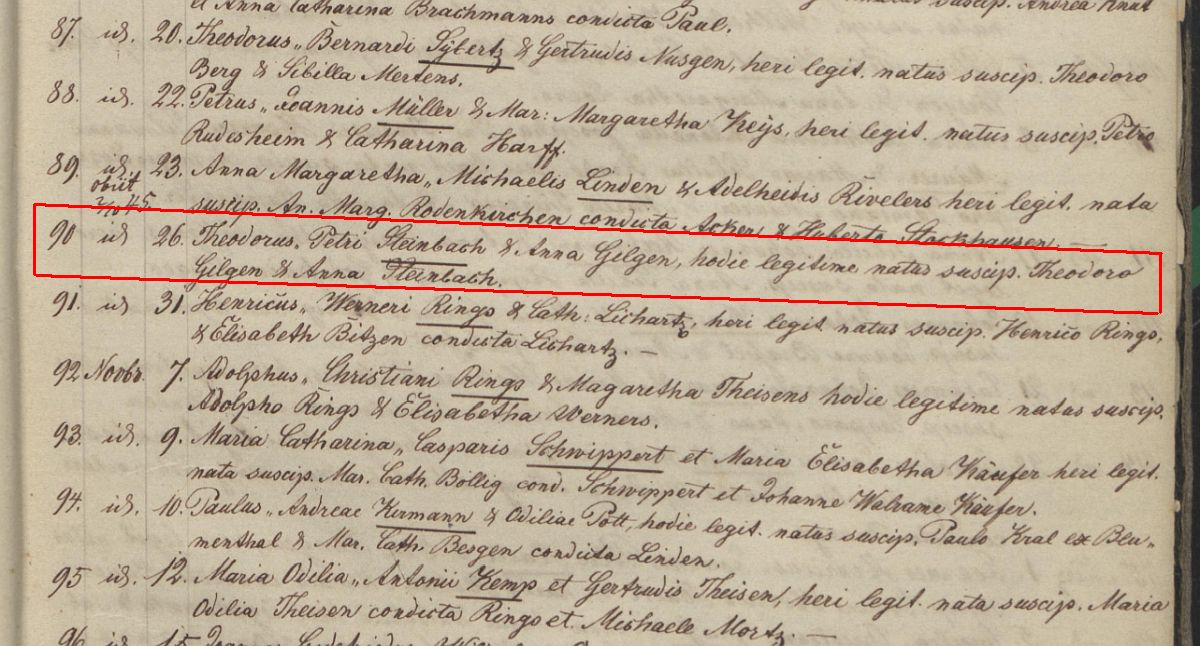 et Anna Catharina Brachmanns condicta Paul.
87. id. 20. Theodorus„ Bernardi Sÿbertz & Gertrudis Nusgen, heri legit. natus suscip. Theodoro
Berg & Sibilla Mertens.
88. id. 22. Petrus„ Joannis Müller & Mar: Margaretha Keÿs, heri legit. natus suscip. Petro
Rudesheim & Catharina Harff.
89. id. 23. Anna Margaretha„ Michaelis Linden & Adelheidis Rivelers heri legit. nata
obiit
suscip. An. Marg. Rodenkirchen condicta Acken & Huberto Stockhausen. —
90 id 26. Theodorus„ Petri Steinbach & Anna Gilgen, hodie legitime natus suscip. Theodoro
Gilgen & Anna Steinbach.
91. id. 31. Henricus„ Werneri Rings & Cath: Lichartz, heri legit. natus suscip. Henrico Rings,
& Elisabeth Bitzen condicta Lichartz. —
92 Novbr. 7. Adolphus„ Christiani Rings & Magaretha Theisens hodie legitime natus suscip.
Adolpho Rings & Elisabetha Werners.
93. id. 9. Maria Catharina„ Casparis Schwippert et Maria Elisabetha Käufer heri legit.
nata suscip. Mar. Cath. Bollig cond. Schwippert et Johanne Walrame Käufer.
94. id. 10. Paulus„ Andreae Kermann & Odiliae Pott, hodie legit. natus suscip. Paulo Kral ex Blu„
menthal & Mar. Cath. Besgen condicta Linden.
95 id. 12. Maria Odilia„ Antonii Kemp et Gertrudis Theisen, heri legit. nata suscip. Maria
Odilia Theisen condicta Rings et Michaele Mortz. —
96 id. 15.